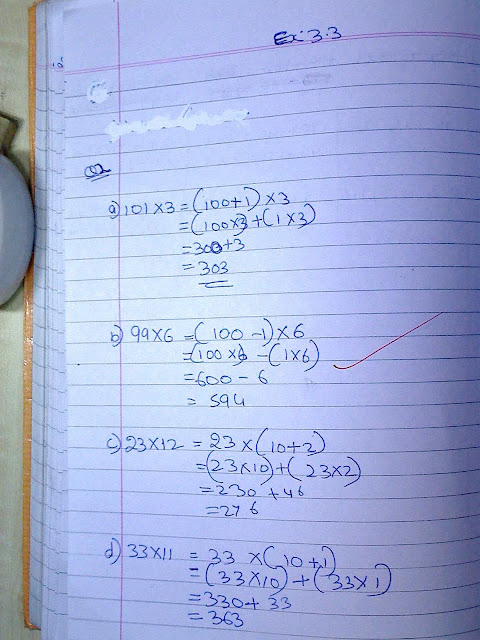 Ex: 3.3
Q2
a) 101×3 = (100+1) ×3
= (100×3) + (1×3)
= 300+3
= 303
b) 99×6 = (100 -1) ×6
= (100 ×6) - (1×6)
= 600 - 6
= 594
c) 23×12 = 23 × (10+2)
= (23×10) + (23×2)
= 230 + 46
= 276
d) 33×11 = 33 × (10+1)
= (33×10) + (33×1)
= 330+ 33
= 363